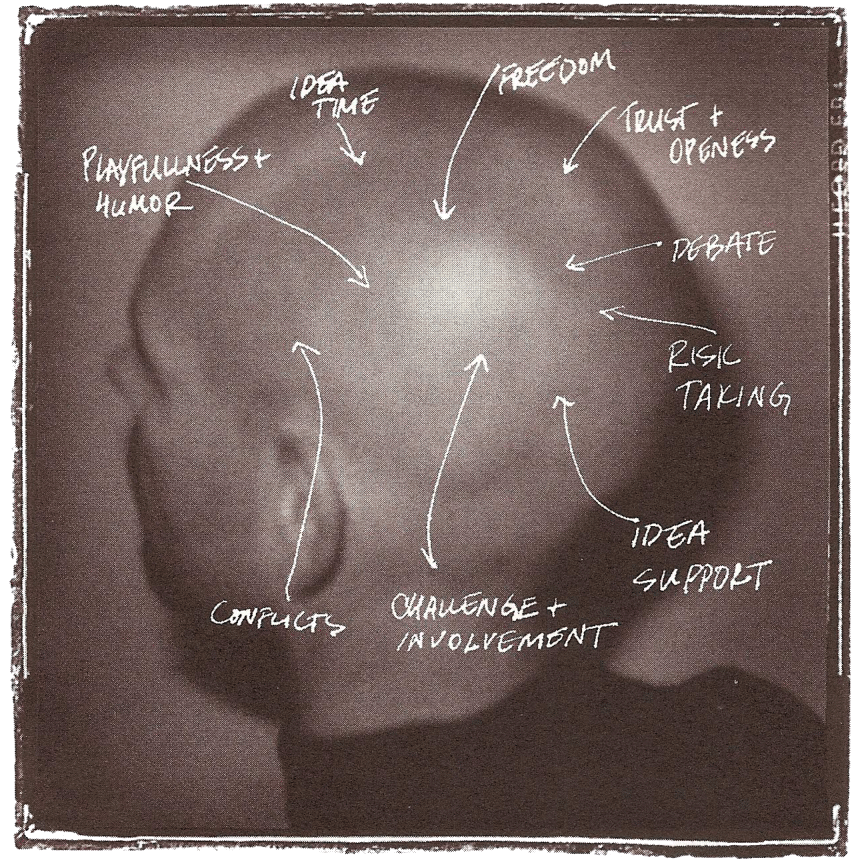 IDEA
TIME
FREEDOM
TRUST +
OPENESS
PLAYFULLNESS +
HUMOR
DEBATE
RISK
TAKING
IDEA
SUPPORT
CONFLICTS
CHALLENGE +
INVOLVEMENT